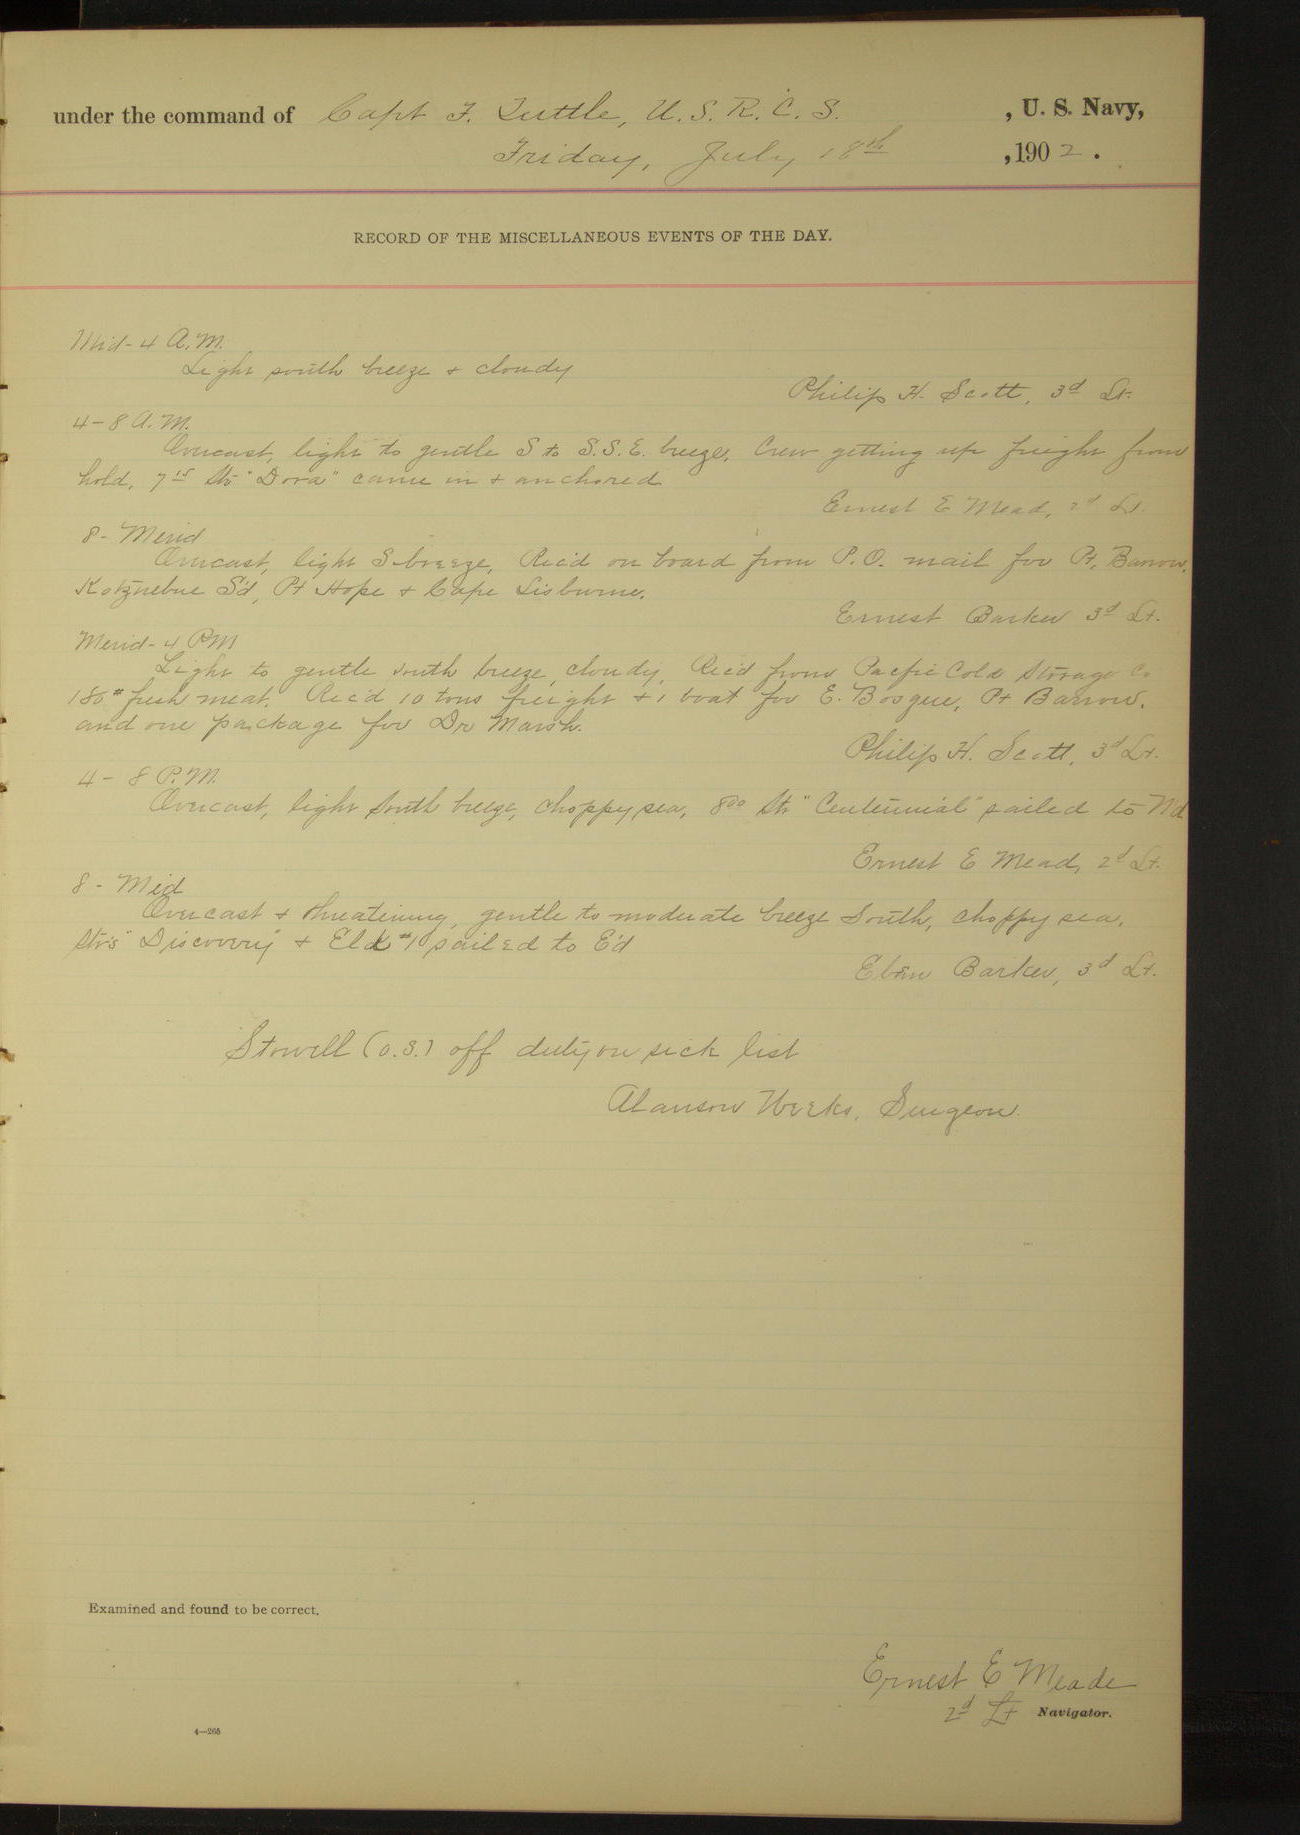 under the command of Capt F. Tuttle, U.S.R.C.S. , U. S. Navy,
Friday, July 18th ,1902.
RECORD OF THE MISCELLANEOUS EVENTS OF THE DAY.
Mid-4 A.M.
Light south breeze + cloudy
Philip H. Scott, 3d Lt.
4-8 A.M.
Overcast, light to gentle S to S.S.E. breeze. Crew getting up freight from
hold, 7 15 Str "Dora" came in + anchored
Ernest E Mead, 2d Lt.
8- Merid
Overcast, light S breeze, Rec'd on board from P.O. mail for Pt. Barrow,
Kotznebue S'd, Pt Hope + Cape Lisburne.
Ernest Barker 3d Lt.
Merid-4 PM
Light to gentle south breeze, cloudy, Rec'd from Pacfic Cold Storage Co
180# fresh meat. Rec'd 10 tons freight + 1 boat for E. Bosque, Pt Barrow.
and one package for Dr Marsh.
Philip H. Scott, 3d Lt.
4- 8 P.M.
Overcast, light South breeze, choppy sea, 8 00 Str "Centennial" sailed to N'd
Ernest E Mead, 2d Lt.
8- Mid
Overcast + threatening, gentle to moderate breeze South, choppy sea.
Str's "Discovery" + Elk #1 sailed to E'd
Eben Barker, 3d Lt.
Stowell (O.S.) off duty on sick list
Alanson Weeks, Surgeon.
Examined and found to be correct.
Ernest E Meade
2d Lt Navigator.
4—265